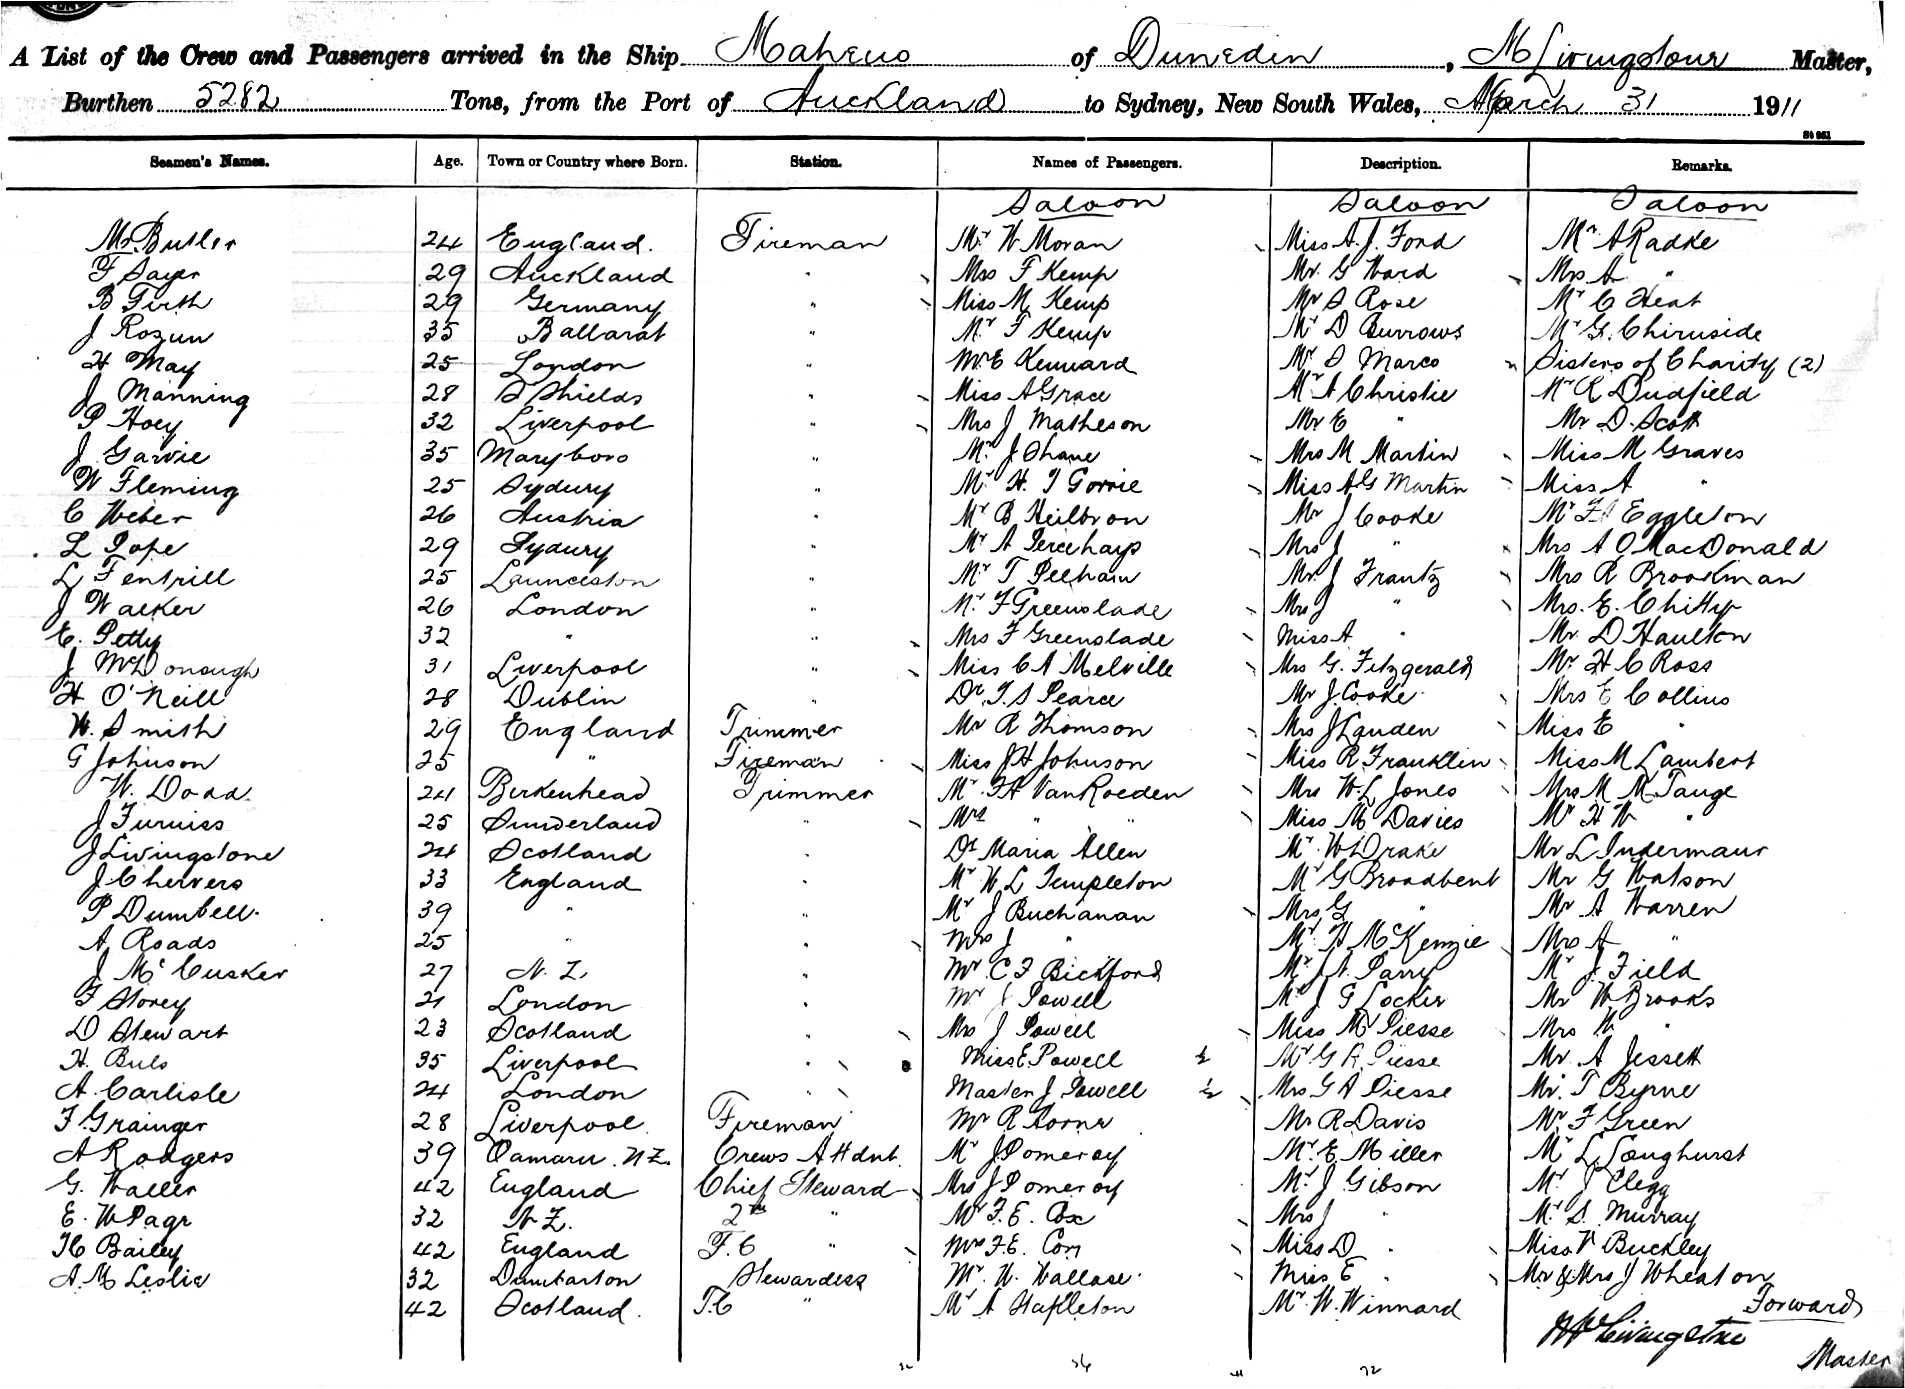 A List of the Crew and Passengers arrived in the Ship Maheno of Dunedin, M Livingstone Master,
Burthen 5282 Tons, from the Port of Auckland to Sydney, New South Wales, March 31 1911
Seamen's Names. Age. Town or Country where Born. Station. Names of Passengers. Description. Remarks.
Saloon Saloon Saloon
Butler 24 England. Fireman Mr W Moran Miss A. J. Ford Mr A Radke
F Sayer 29 Auckland " Mrs F Kemp Mr. G Ward Mrs A "
B Firth 29 Germany " Miss M Kemp Mr S Rose Mr C Heat
J Rozun 35 Ballarat " Mr F Kemp Mr D Burrows Mr G. Chirnside
H May 25 London " Mr E Kennard Mr S Marco Sisters of Charity (2)
J Manning 28 S Shields " Miss A Grace Mr A Christie Mr R Dudfield
P Hoey 32 Liverpool " Mrs J Matheson Mr E " Mr D. Scott
J Garvie 35 Maryboro " Mr J Shane Mrs M Martin Miss M Graves
W Fleming 25 Sydney " Mr H. J Gorrie Miss A G Martin Miss A "
C Weber 26 Austria " Mr B Heilbron Mr J Cooke Mr Eggleton
L Pope 29 Sydney " Mr A Mrs J " Mrs A O MacDonald
L Fentrill 25 Launceston " Mr T Pelham Mr J Frantz Mrs R Brookman
J Walker 26 London " Mr F Greenslade Mrs J " Mrs. E. Chitty
E. Petty 32 " " Mrs F Greenslade Miss A " Mr D Haulton
J McDonough 31 Liverpool " Miss C A Melville Mrs G. Fitzgerald Mr H C Ross
H O'Neill 28 Dublin " Dr T. S Pearce Mr J. Cooke Mrs E Collins
W. Smith 29 England Trimmer Mr R Thomson Mrs J Lauden Miss E "
G Johnson 25 " Fireman Miss J H Johnson Miss R Franklin Miss M Lambert
W. Dodd. 24 Birkenhead Trimmer Mr F A Van Roeden Mrs W L Jones Mrs M M Tange
J Furniss 25 Sunderland " Mrs " " Miss M Davies Mr H W "
J Livingstone 24 Scotland " Dr Maria Allen Mr W Drake Mr L Indermaur
J Chervers 33 England " Mr W L Templeton Mr G Broadbent Mr G Watson
P Dumbell. 39 " " Mr J Buchanan Mrs G " Mr A Warren
A Roads 25 " " Mrs J " Mr H McKenzie Mrs A "
J McCusker 27 N. Z " Mr C F Bickford Mr Parry Mr J Field
F Storey 21 London " Mr J Powell Mr J G Locker Mr W Brooks
D Stewart 23 Scotland " Mrs J Powell Miss M Piesse Mrs W "
H. Buls 35 Liverpool " Miss E Powell ½ Mr G A Piesse Mr. A Jessett
A. Carlisle 24 London " Master J Powell ½ Mrs G A Piesse Mr. T Byrne
F Grainger 28 Liverpool. Fireman Mr R Horne Mr R Davis Mr F Green
A Rodgers 39 Oamaru. N Z. Crews Attdnt. Mr J Pomeroy Mr E Miller Mr L Longhurst
G. Waller 42 England Chief Steward Mrs J Pomeroy Mr J Gibson Mr J Clegg
E. W Page 32 N. Z. 2nd " Mr F. E. Cox Mrs J " Mr S. Murray
H Bailey 42 England F. C " Mrs F. E. Cox Miss D " Miss V Buckley
A. M Leslie 32 Dumbarton Stewardess Mr W. Wallace. Miss E " Mr & Mrs J Wheaton
42 Scotland. T. C " Mr A Stapleton Mr W. Winnard Forward
Livingstone
Master
36 72